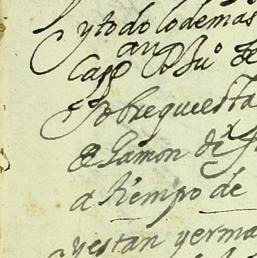 y todo lo demas
an
Cap
Sobre que esta
Ramon de
a tiempo de
y estan y erma